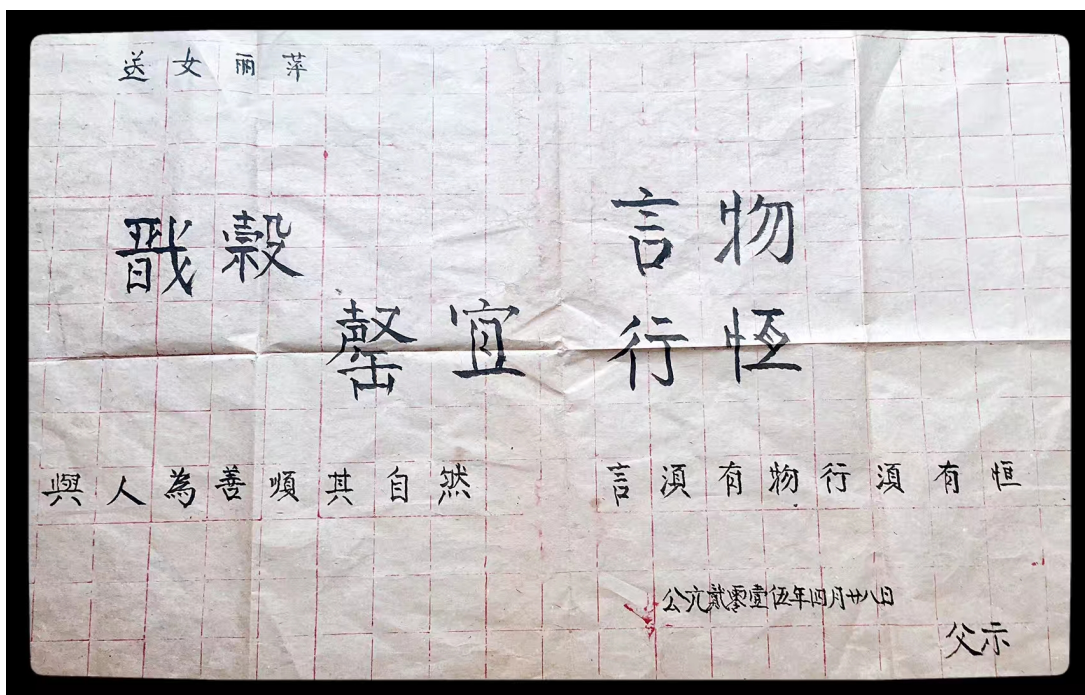 送女丽萍
戬穀 言物
罄宜 行恆
與人為善順其自然 言須有物行須有恒
公元貳零壹伍年四月廿八日
父示